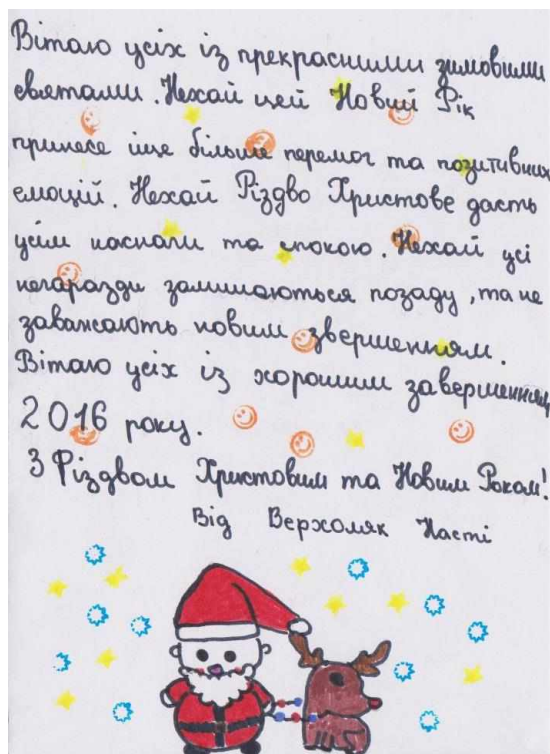 Вітаю усіх із прекрасними зимовими
святами. Нехай цей Новий Рік
принесе іще більше перемог та позитивних
емоцій. Нехай Різдво Христове дасть
усім наснаги та спокою. Нехай усі
негаразди залишаються позаду, та не
заважають новим звершенням.
Вітаю усіх із хорошим завершенням
2016 року.
З Різдвом Христовим та Новим Роком!
Від Верхоляк Насті